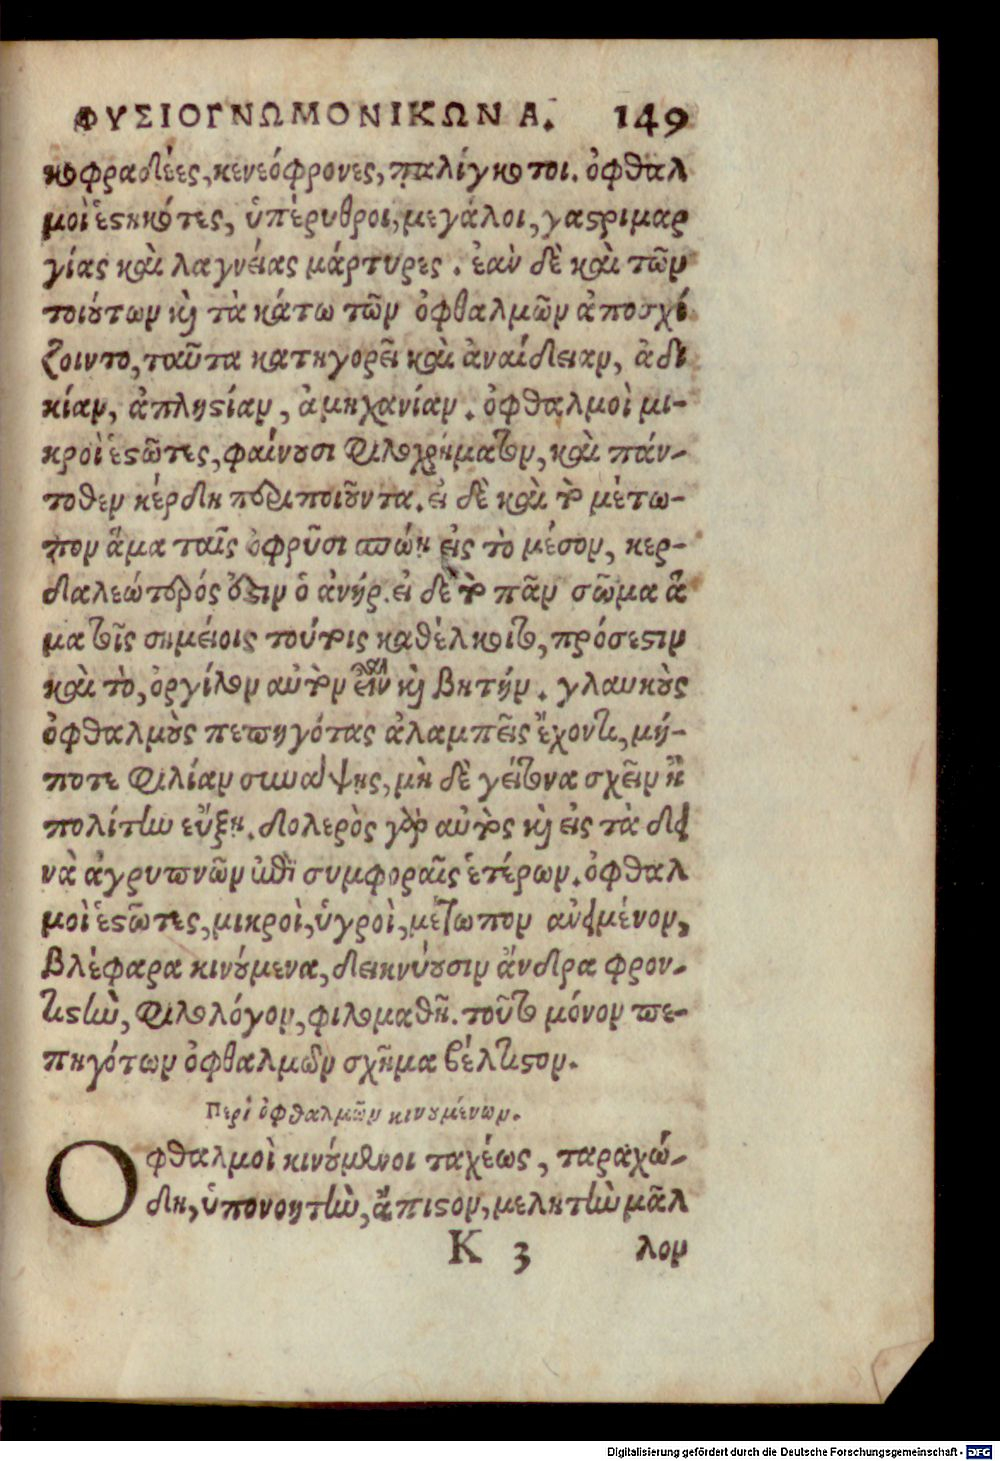 ΦΥΣΙΟΓΝΩΜΟΝΙΚΩΝ Α. 149
κοφραδέες, κενεόφρονες, παλίγκοτοι. ὀφθαλ
μοὶ ἑστηκότες, ὑπέρυθροι, μεγάλοι, γαστριμαρ
γίας καὶ λαγνείας μάρτυρες. ἐὰν δὲ καὶ τῶν
τοιούτων καὶ τὰ κάτω τῶν ὀφθαλμῶν ἀποσχί
ζοιντο, ταῦτα κατηγορεῖ καὶ ἀναίδειαν, ἀδι
κίαν, ἀπληστίαν, ἀμηχανίαν. ὀφθαλμοὶ μι-
κροὶ ἑστῶτες, φαίνουσι φιλοχρήματον, καὶ πάν-
τοθεν κέρδη περιποιοῦντα. εἰ δὲ καὶ τὸ μέτω-
πον ἅμα ταῖς ὀφρῦσι σπώη εἰς τὸ μέσον, κερ-
δαλεώτερός ἐστιν ὁ ἀνήρ. εἰ δὲ τὸ πᾶν σῶμα ἅ
μα τοῖς σημείοις τούτοις καθέλκοιτο, πρόσεστιν
καὶ τὸ, ὀργίλον αὐτὸν εἶναι καὶ βητήν. γλαυκοὺς
ὀφθαλμοὺς πεπηγότας ἀλαμπεῖς ἔχοντι, μή-
ποτε φιλίαν συνάψῃς, μὴ δὲ γείτονα σχεῖν ἢ
πολίτην εὔξῃ. δολερὸς γὰρ αὐτὸς καὶ εἰς τὰ δει
νὰ ἀγρυπνῶν ἐπὶ συμφοραῖς ἑτέρων. ὀφθαλ
μοὶ ἑστῶτες, μικροὶ, ὑγροὶ, μέτωπον ἀνειμένον,
βλέφαρα κινούμενα, δεικνύουσιν ἄνδρα φρον-
τιστὴν, φιλολόγον, φιλομαθῆ. τοῦτο μόνον πε-
πηγότων ὀφθαλμῶν σχῆμα βέλτιστον.
Περὶ ὀφθαλμῶν κινουμένων.
Οφθαλμοὶ κινούμενοι ταχέως, ταραχώ-
δη, ὑπονοητὴν, ἄπιστον, μελητὴν μᾶλ
K 3 λον
Digitalisierung gefördert durch die Deutsche Forschungsgemeinschaft - DFG